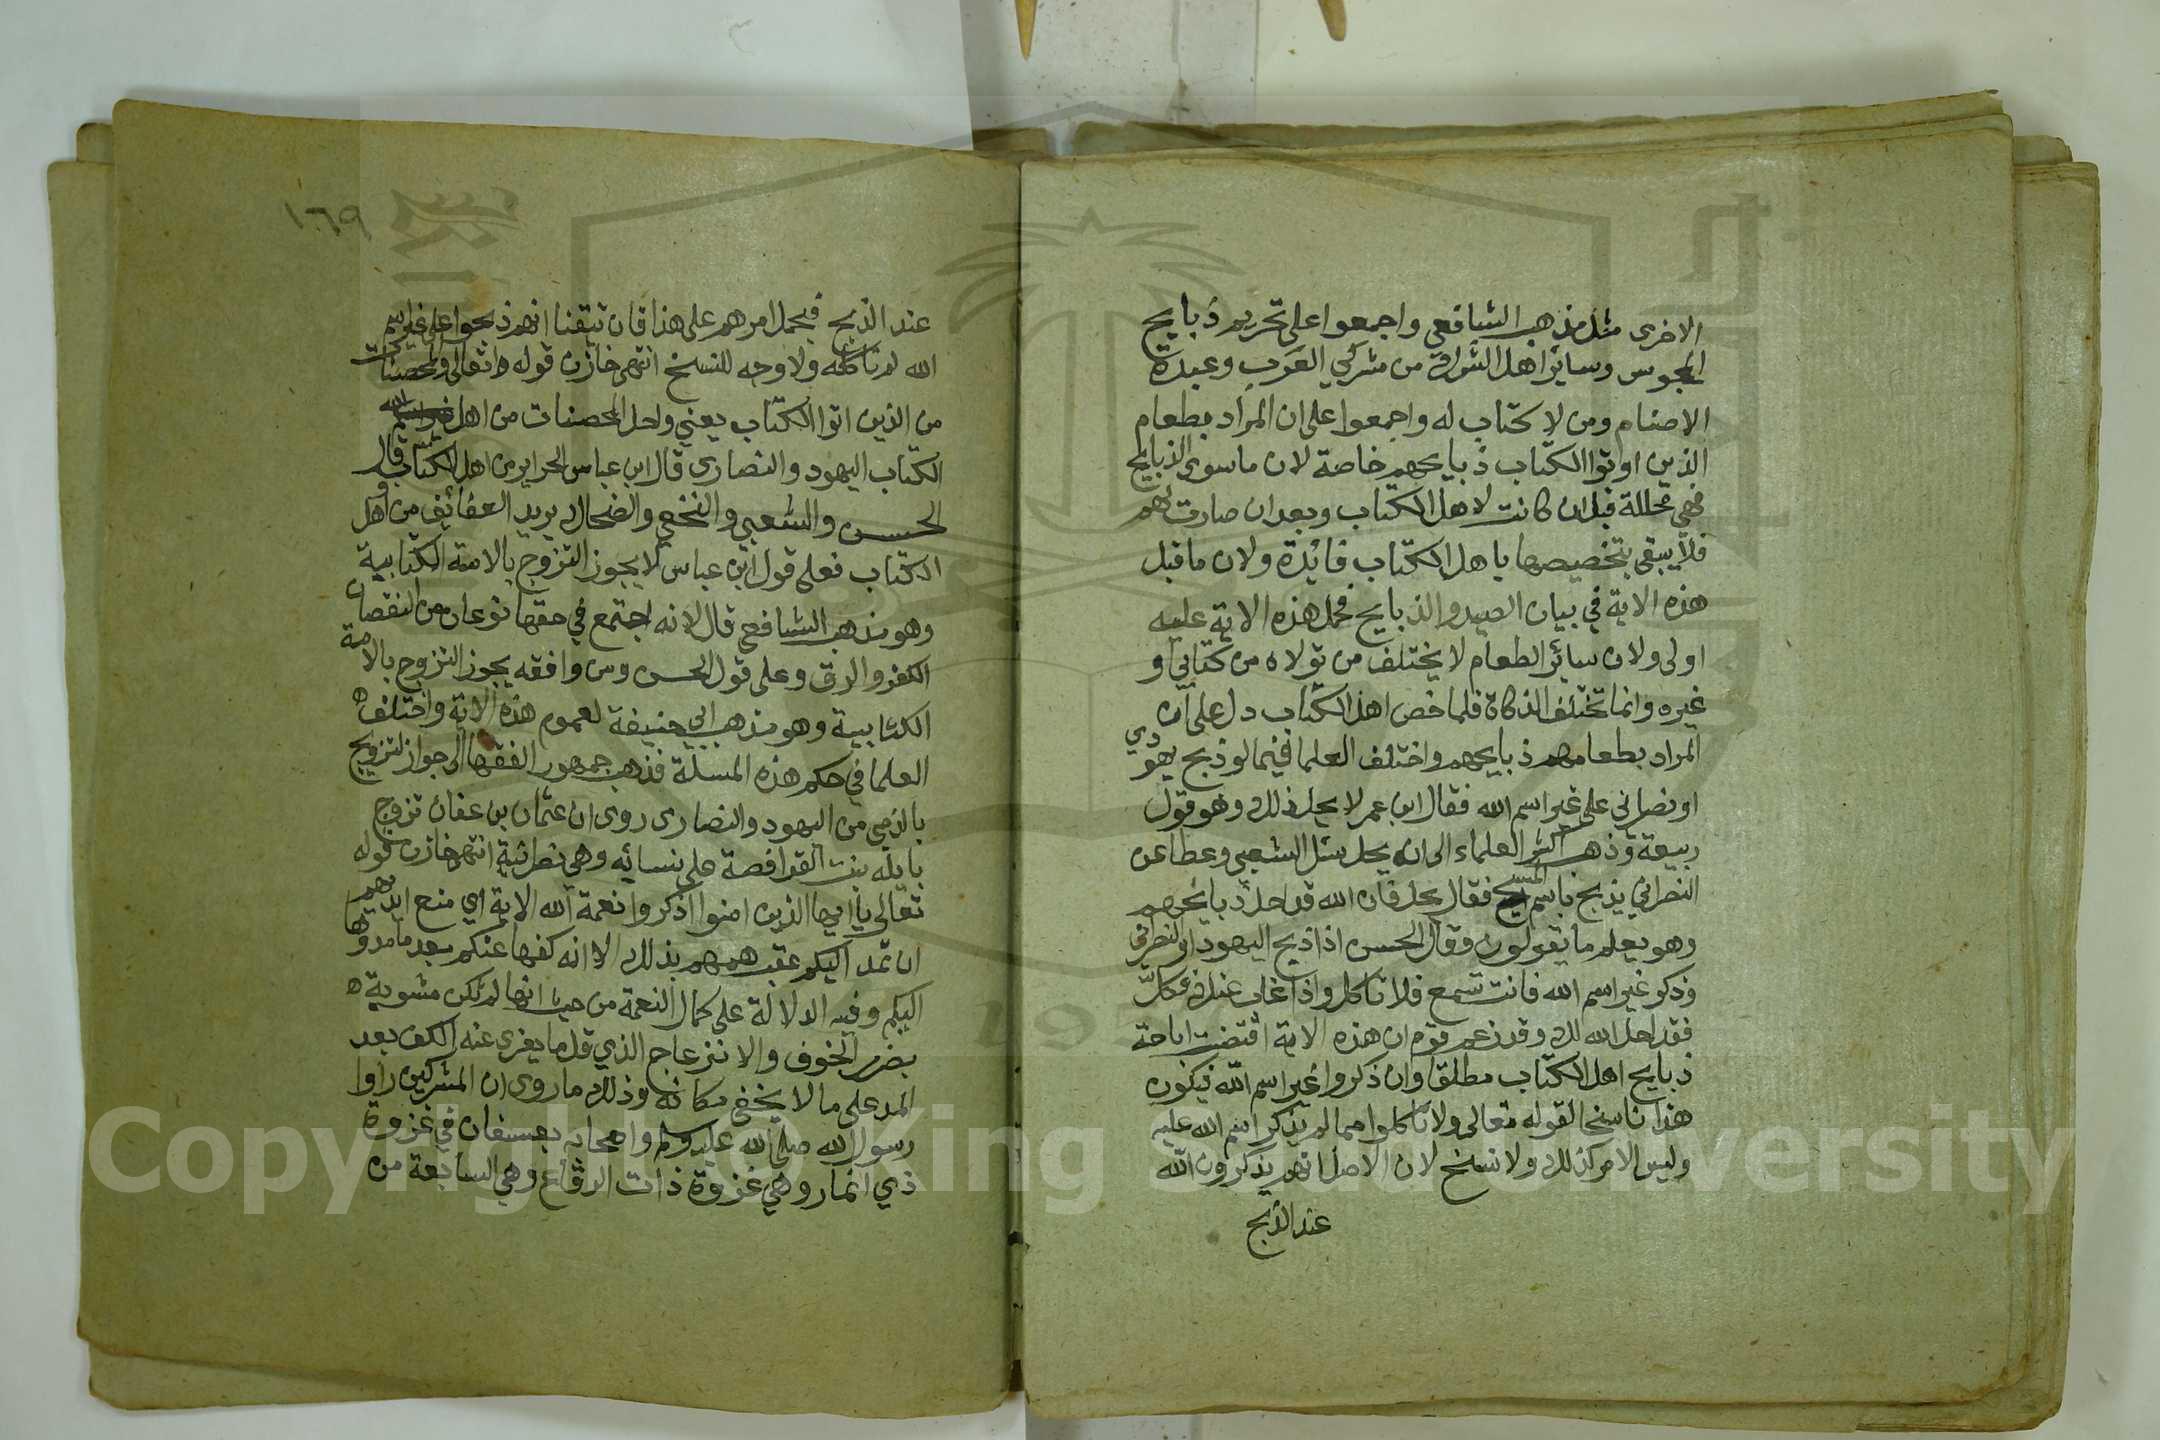 الاخرى مثل مذهب الشافعي واجمعوا على تحريم ذبايح
المجوس وسائر اهل الشرك من مشركي العرب وعبدة
الاصنام ومن لا كتاب له واجمعوا على ان المراد بطعام
الذين اوتوا الكتاب ذبايحهم خاصة لان ما سوى الذبايح
فهي محللة قبل ان كانت لاهل الكتاب وبعد ان صارت لهم
فلا يبقى بتخصيصها باهل الكتاب فائدة ولان ما قبل
هذه الاية في بيان الصيد والذبايح فحمل هذه الاية عليه
اولى ولان سائر الطعام لا يختلف من تولاه من كتابي و
غيره وانما تختلف الذكاة فلما خص اهل الكتاب دل على ان
المراد بطعامهم ذبايحهم واختلف العلما فيما لو ذبح يهودي
او نصراني على غير اسم الله فقال ابن عمر لا يحل ذلك وهو قول
ربيعة وذهب اكثر العلماء الى انه يحل سئل الشعبي وعطا عن
النصراني يذبح باسم المسيح فقال يحل فان الله قد احل ذبايحهم
وهو يعلم ما يقولون وقال الحسن اذا ذبح اليهود او النصراني
وذكر غير اسم الله فانت تسمع فلا تاكل واذا غاب عنك فكل
فقد احل الله لك وقد زعم قوم ان هذه الاية اقتضت اباحة
ذبايح اهل الكتاب مطلقا وان ذكروا غير اسم الله فيكون
هذا ناسخا لقوله تعالى ولا تاكلوا مما لم يذكر اسم الله عليه
وليس الامر كذلك ولا نسخ لان الاصل انهم يذكرون الله
عند الذبح
١٦٩
عند الذبح فيحمل امرهم على هذا فان تيقنا انهم ذبحوا على غير اسم
الله لم تاكله ولا وجه للنسخ انتهى خازن قوله تعالى والمحصنات
من الذين اتوا الكتاب يعني واحل المحصنات من اهل
الكتاب اليهود والنصارى قال ابن عباس الحراير من اهل الكتاب وقال
الحسن والشعبي والنخعي والضحاك يريد العفائف من اهل
الكتاب فعلى قول ابن عباس لا يجوز التزوج بالامة الكتابية
وهو مذهب الشافعي قال لانه اجتمع في حقها نوعان من النقصان
الكفر والرق وعلى قول الحسن ومن وافقه يجوز التزوج بالامة
الكتابية وهو مذهب ابي حنيفة لعموم هذه الاية واختلف
العلما في حكم هذه المسلة فذهب جمهور الفقها الى جواز التزويج
بالذمي من اليهود والنصارى روى ان عثمان بن عفان تزوج
بايله بنت القرافصة على نسائه وهي نصرانية انتهى خازن قوله
تعالى يا ايها الذين امنوا اذكروا نعمة الله الاية اي منع ايديهم
ان تمد اليكم عقب همهم بذلك الا انه كفها عنكم بعد ما مدوها
اليكم وفيه الدلالة على كمال النعمة من حيث انها لم تكن مشوبة
بضرر الخوف والانزعاج الذي قل ما يعرى عنه الكف بعد
المد على ما لا يخفى مكانه وذلك ما روى ان المشركين راوا
رسول الله صلى الله عليه وسلم واصحابه بعسفان في غزوة
ذي انمار وهي غزوة ذات الرقاع وهي السابعة من
Copyright © King Saud University